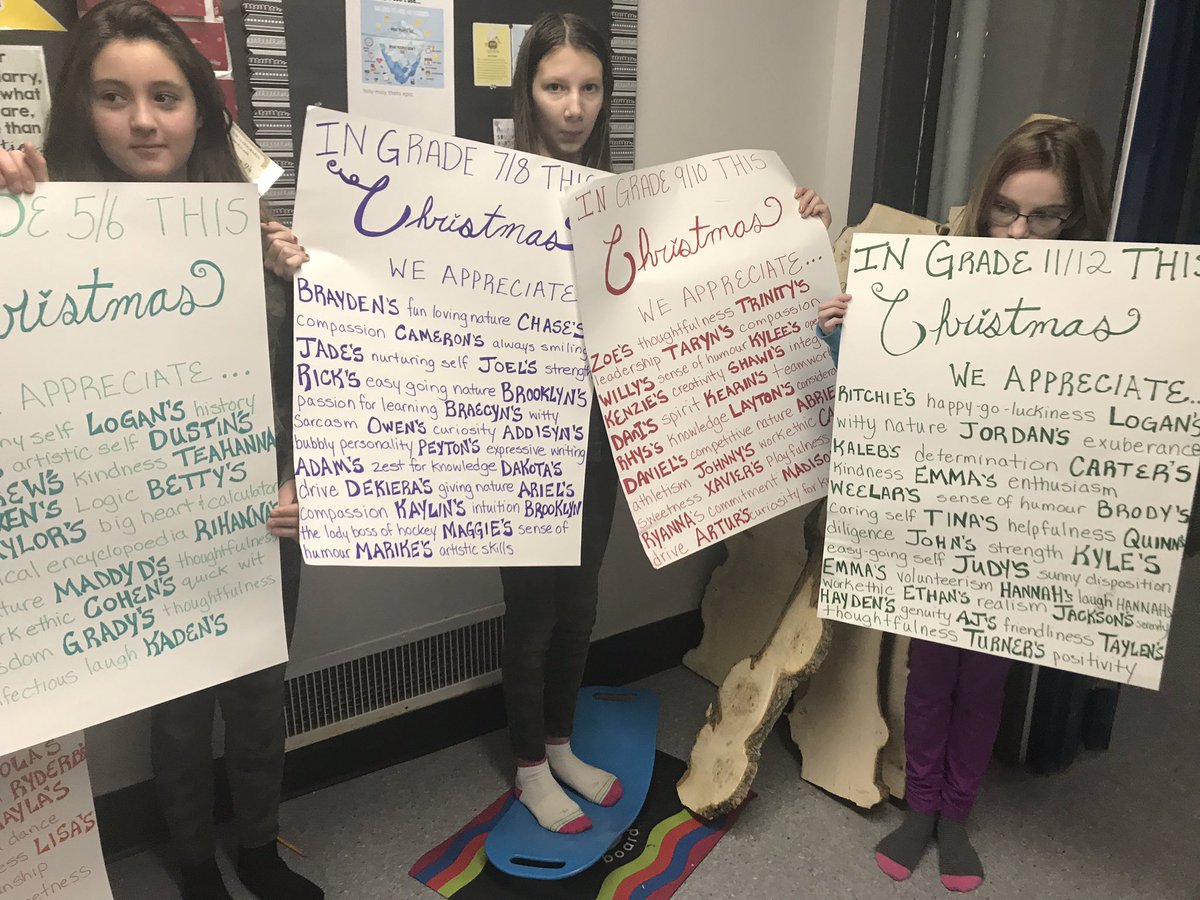 5/6 THIS
Christmas
APPRECIATE...
self LOGAN'S history
artistic self DUSTIN'S
kindness TEAHANNA
Logic BETTY'S
big heart & calculator
encyclopoedia RIHANNA
MADDY D'S thoughtfulness
ethic COHEN'S quick wit
GRADY'S thoughtfulness
infectious laugh KADEN'S
RYDER
dance
LISA'S
IN GRADE 7/8 THIS
Christmas
WE APPRECIATE
BRAYDEN'S fun loving nature CHASE'S
compassion CAMERON'S always smiling
JADE'S nurturing self JOEL'S strength
RICK'S easy going nature BROOKLYN'S
passion for learning BRAECYN'S witty
Sarcasm OWEN'S curiosity ADDISYN'S
bubbly personality PEYTON'S expressive writing
ADAM'S zest for knowledge DAKOTA'S
drive DEKIERA'S giving nature ARIEL'S
compassion KAYLIN'S intuition BROOKLYN
the lady boss of hockey MAGGIE'S sense of
humour MARIKE'S artistic skills
IN GRADE 9/10 THIS
Christmas
WE APPRECIATE...
ZOE'S thoughtfulness TRINITY'S
leadership TARYN'S compassion
WILLY'S sense of humour KYLEE'S
KENZIE'S creativity SHAWI'S
DANI'S spirit KEARIN'S teamwork
RHYS'S knowledge LAYTON'S
DANIEL'S competitive nature
athletism JOHNNY'S work ethic
sweetness XAVIER'S playfulness
RYANNA'S commitment
drive ARTUR'S curiosity for
IN GRADE 11/12 THIS
Christmas
WE APPRECIATE...
RITCHIE'S happy-go-luckiness LOGAN'S
witty nature JORDAN'S exuberance
KALEB'S determination CARTER'S
kindness EMMA'S enthusiasm
WEELAR'S sense of humour BRODY'S
caring self TINA'S helpfulness QUINN'S
diligence JOHN'S strength KYLE'S
easy-going self JUDY'S sunny disposition
EMMA'S volunteerism HANNAH'S laugh HANNAH'S
work ethic ETHAN'S realism JACKSON'S serenity
HAYDEN'S genuity AJ'S friendliness TAYLEN'S
thoughtfulness TURNER'S positivity
board